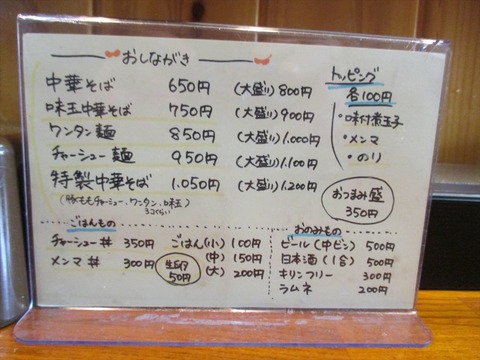 おしながき
中華そば 650円 (大盛り)800円
味玉中華そば 750円 (大盛り)900円
ワンタン麺 850円 (大盛り)1.000円
チャーシュー麺 950円 (大盛り)1.100円
特製中華そば 1.050円 (大盛り)1.200円
(豚ももチャーシュー、ワンタン、味玉)
3コぐらい
トッピング
各100円
・味付煮玉子
・メンマ
・のり
おつまみ盛
350円
ごはんもの
チャーシュー丼 350円
メンマ丼 300円
ごはん(小) 100円
(中) 150円
(大) 200円
50円
おのみもの
ビール(中ビン) 500円
日本酒(1合) 500円
キリンフリー 300円
ラムネ 200円